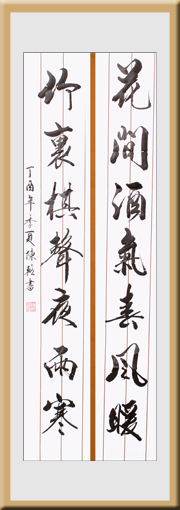 花間酒氣春風暖
竹裏棋聲夜雨寒
丁酉年季夏陳超書